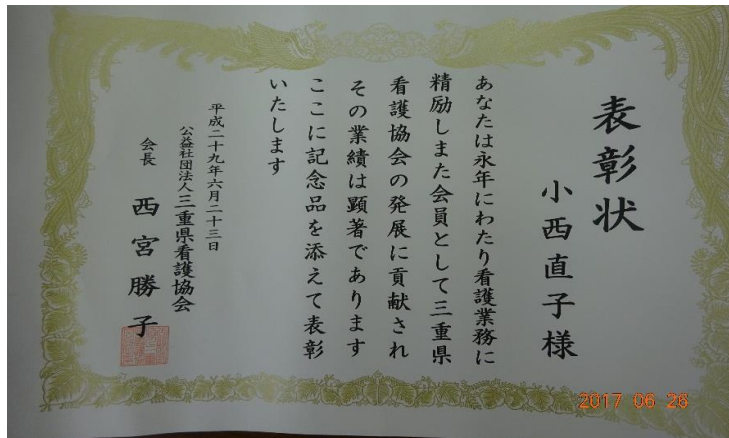 表彰状
小西直子様
あなたは永年にわたり看護業務に
精励しまた会員として三重県
看護協会の発展に貢献され
その業績は顕著であります
ここに記念品を添えて表彰
いたします
平成二十九年六月二十三日
公益社団法人三重県看護協会
会長 西宮勝子
2017 06 26